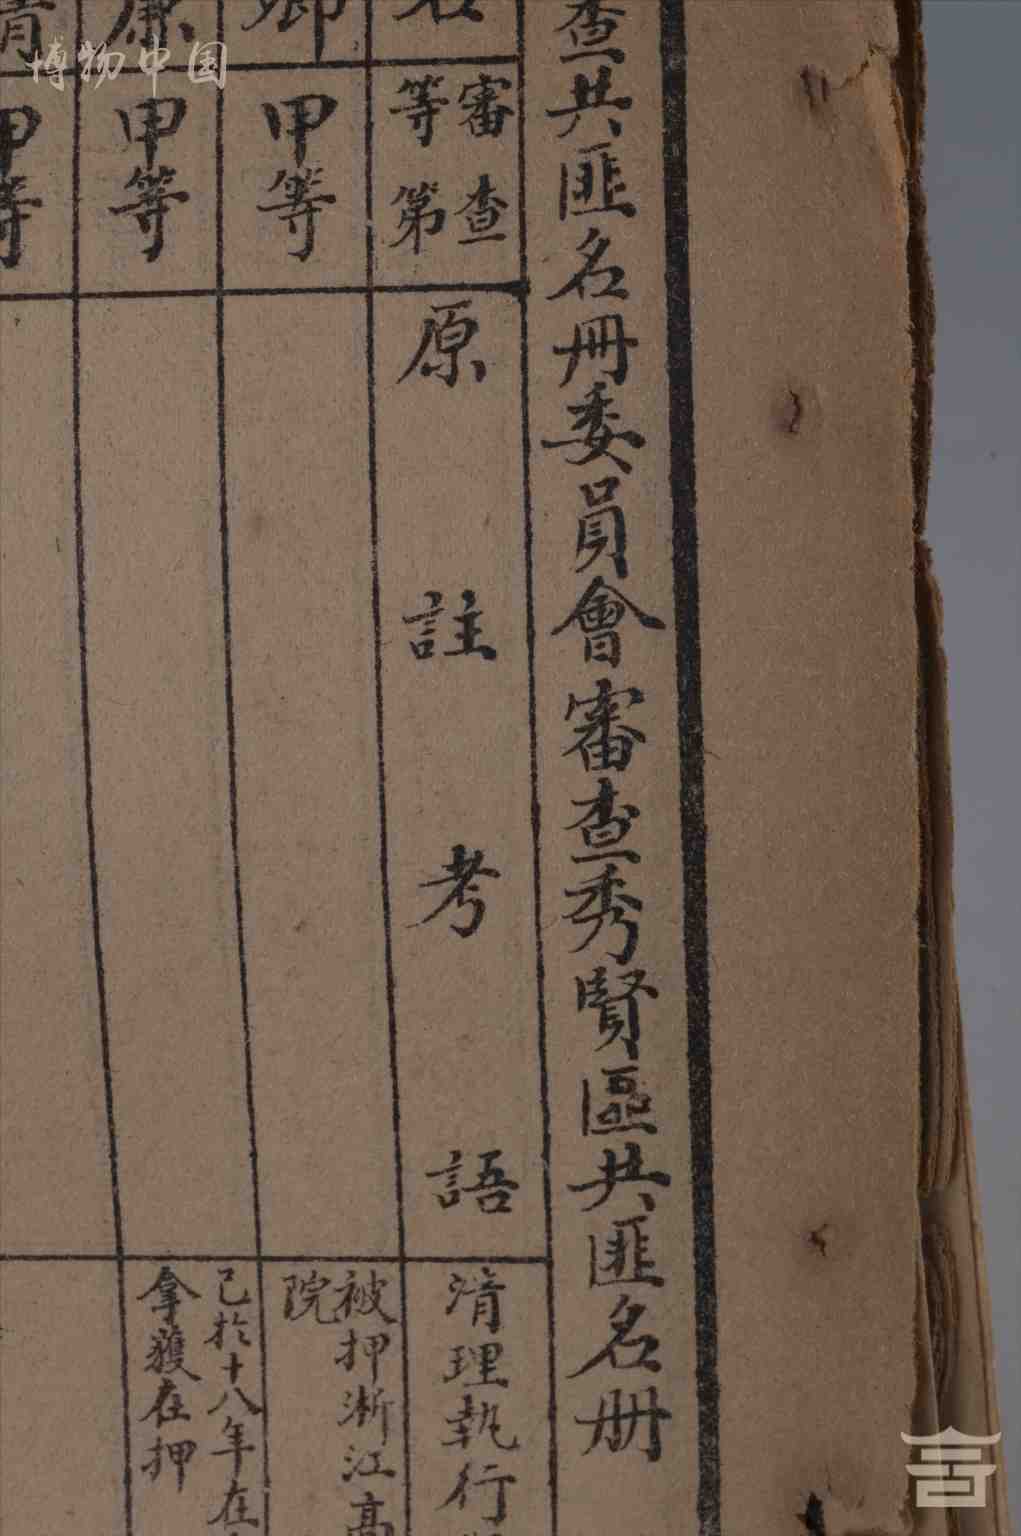 博物中国
查共匪名冊委員會審查秀賢區共匪名册
名
審查
等第
原註考語
清理執行
卿
甲等
被押浙江高
院
康
甲等
已於十八年在
拿獲在押
清
甲等